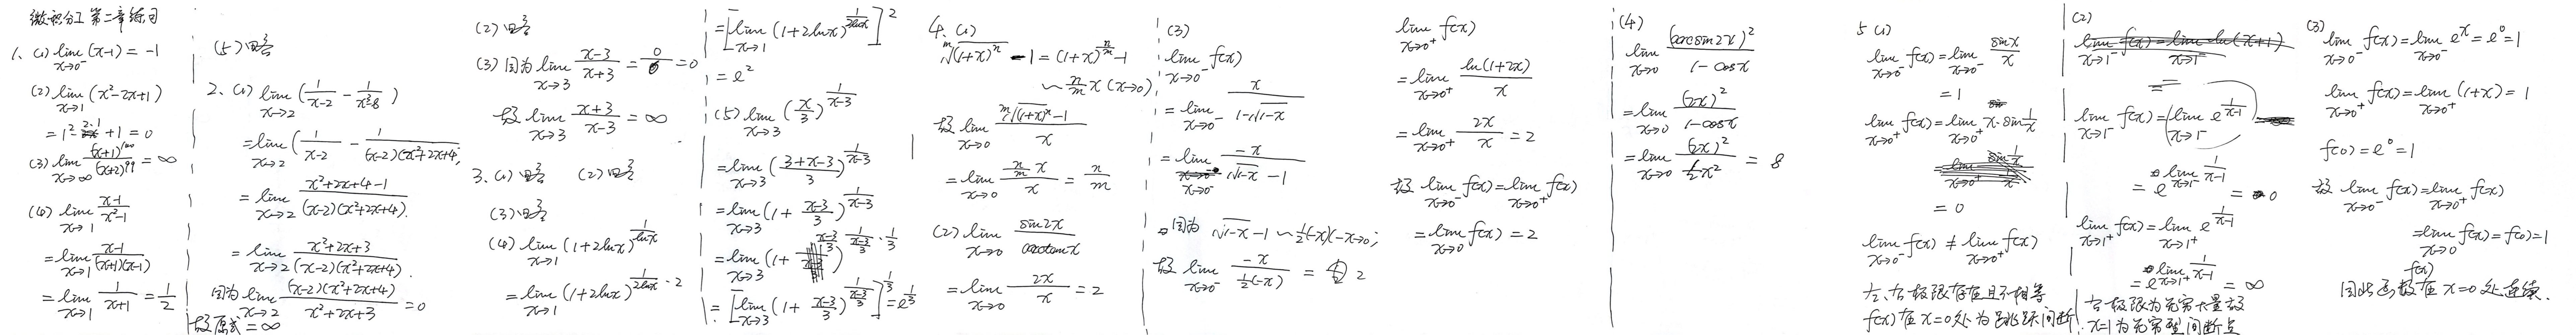 微积分工 第二章练习
1、(1) lim_{x→0⁻} (x-1) = -1
(2) lim_{x→1} (x²-2x+1)
= 1² - 2·1 + 1 = 0
(3) lim_{x→∞} (x+1)^{100}/(x+2)^{99} = ∞
(4) lim_{x→1} (x-1)/(x²-1)
= lim_{x→1} (x-1)/((x+1)(x-1))
= lim_{x→1} 1/(x+1) = 1/2
(5) 略
2、(1) lim_{x→2} (1/(x-2) - 1/(x³-8))
= lim_{x→2} (1/(x-2) - 1/((x-2)(x²+2x+4)))
= lim_{x→2} (x²+2x+4-1)/((x-2)(x²+2x+4)).
= lim_{x→2} (x²+2x+3)/((x-2)(x²+2x+4)).
因为 lim_{x→2} (x-2)(x²+2x+4)/(x²+2x+3) = 0
故原式 = ∞
(2) 略
(3) 因为 lim_{x→3} (x-3)/(x+3) = 0/6 = 0
故 lim_{x→3} (x+3)/(x-3) = ∞
3、(1) 略 (2) 略
(3) 略
(4) lim_{x→1} (1+2lnx)^{1/lnx}
= lim_{x→1} (1+2lnx)^{1/(2lnx)·2}
= [lim_{x→1} (1+2lnx)^{1/(2lnx)}]²
= e²
(5) lim_{x→3} (x/3)^{1/(x-3)}
= lim_{x→3} ((3+x-3)/3)^{1/(x-3)}
= lim_{x→3} (1 + (x-3)/3)^{1/(x-3)}
= lim_{x→3} (1 + (x-3)/3)^{1/((x-3)/3)·1/3}
= [lim_{x→3} (1 + (x-3)/3)^{1/((x-3)/3)}]^{1/3} = e^{1/3}
4、(1)
ᵐ√((1+x)ⁿ) - 1 = (1+x)^{n/m} - 1
~ (n/m)x (x→0)
故 lim_{x→0} (ᵐ√((1+x)ⁿ) - 1)/x
= lim_{x→0} ((n/m)x)/x = n/m
(2) lim_{x→0} sin2x/arctanx
= lim_{x→0} 2x/x = 2
(3)
lim_{x→0⁻} f(x)
= lim_{x→0⁻} x/(1-√(1-x))
= lim_{x→0⁻} -x/(√(1-x) - 1)
因为 √(1-x) - 1 ~ ½(-x)(-x→0);
故 lim_{x→0⁻} -x/(½(-x)) = 2
lim_{x→0⁺} f(x)
= lim_{x→0⁺} ln(1+2x)/x
= lim_{x→0⁺} 2x/x = 2
故 lim_{x→0⁻} f(x) = lim_{x→0⁺} f(x)
= lim_{x→0} f(x) = 2
(4)
lim_{x→0} (arcsin2x)²/(1-cosx)
= lim_{x→0} (2x)²/(1-cosx)
= lim_{x→0} (2x)²/(½x²) = 8
5 (1)
lim_{x→0⁻} f(x) = lim_{x→0⁻} sinx/x
= 1
lim_{x→0⁺} f(x) = lim_{x→0⁺} x·sin(1/x)
= 0
lim_{x→0⁻} f(x) ≠ lim_{x→0⁺} f(x)
左、右极限存在且不相等
f(x)在x=0处为跳跃间断
(2)
lim_{x→1⁻} f(x) = lim_{x→1⁻} e^{1/(x-1)}
= e^{lim_{x→1⁻} 1/(x-1)} = 0
lim_{x→1⁺} f(x) = lim_{x→1⁺} e^{1/(x-1)}
= e^{lim_{x→1⁺} 1/(x-1)} = ∞
右极限为无穷大量故
x=1为无穷型间断点
(3)
lim_{x→0⁻} f(x) = lim_{x→0⁻} e^x = e⁰ = 1
lim_{x→0⁺} f(x) = lim_{x→0⁺} (1+x) = 1
f(0) = e⁰ = 1
故 lim_{x→0⁻} f(x) = lim_{x→0⁺} f(x)
= lim_{x→0} f(x) = f(0) = 1
因此函数f(x)在x=0处连续.